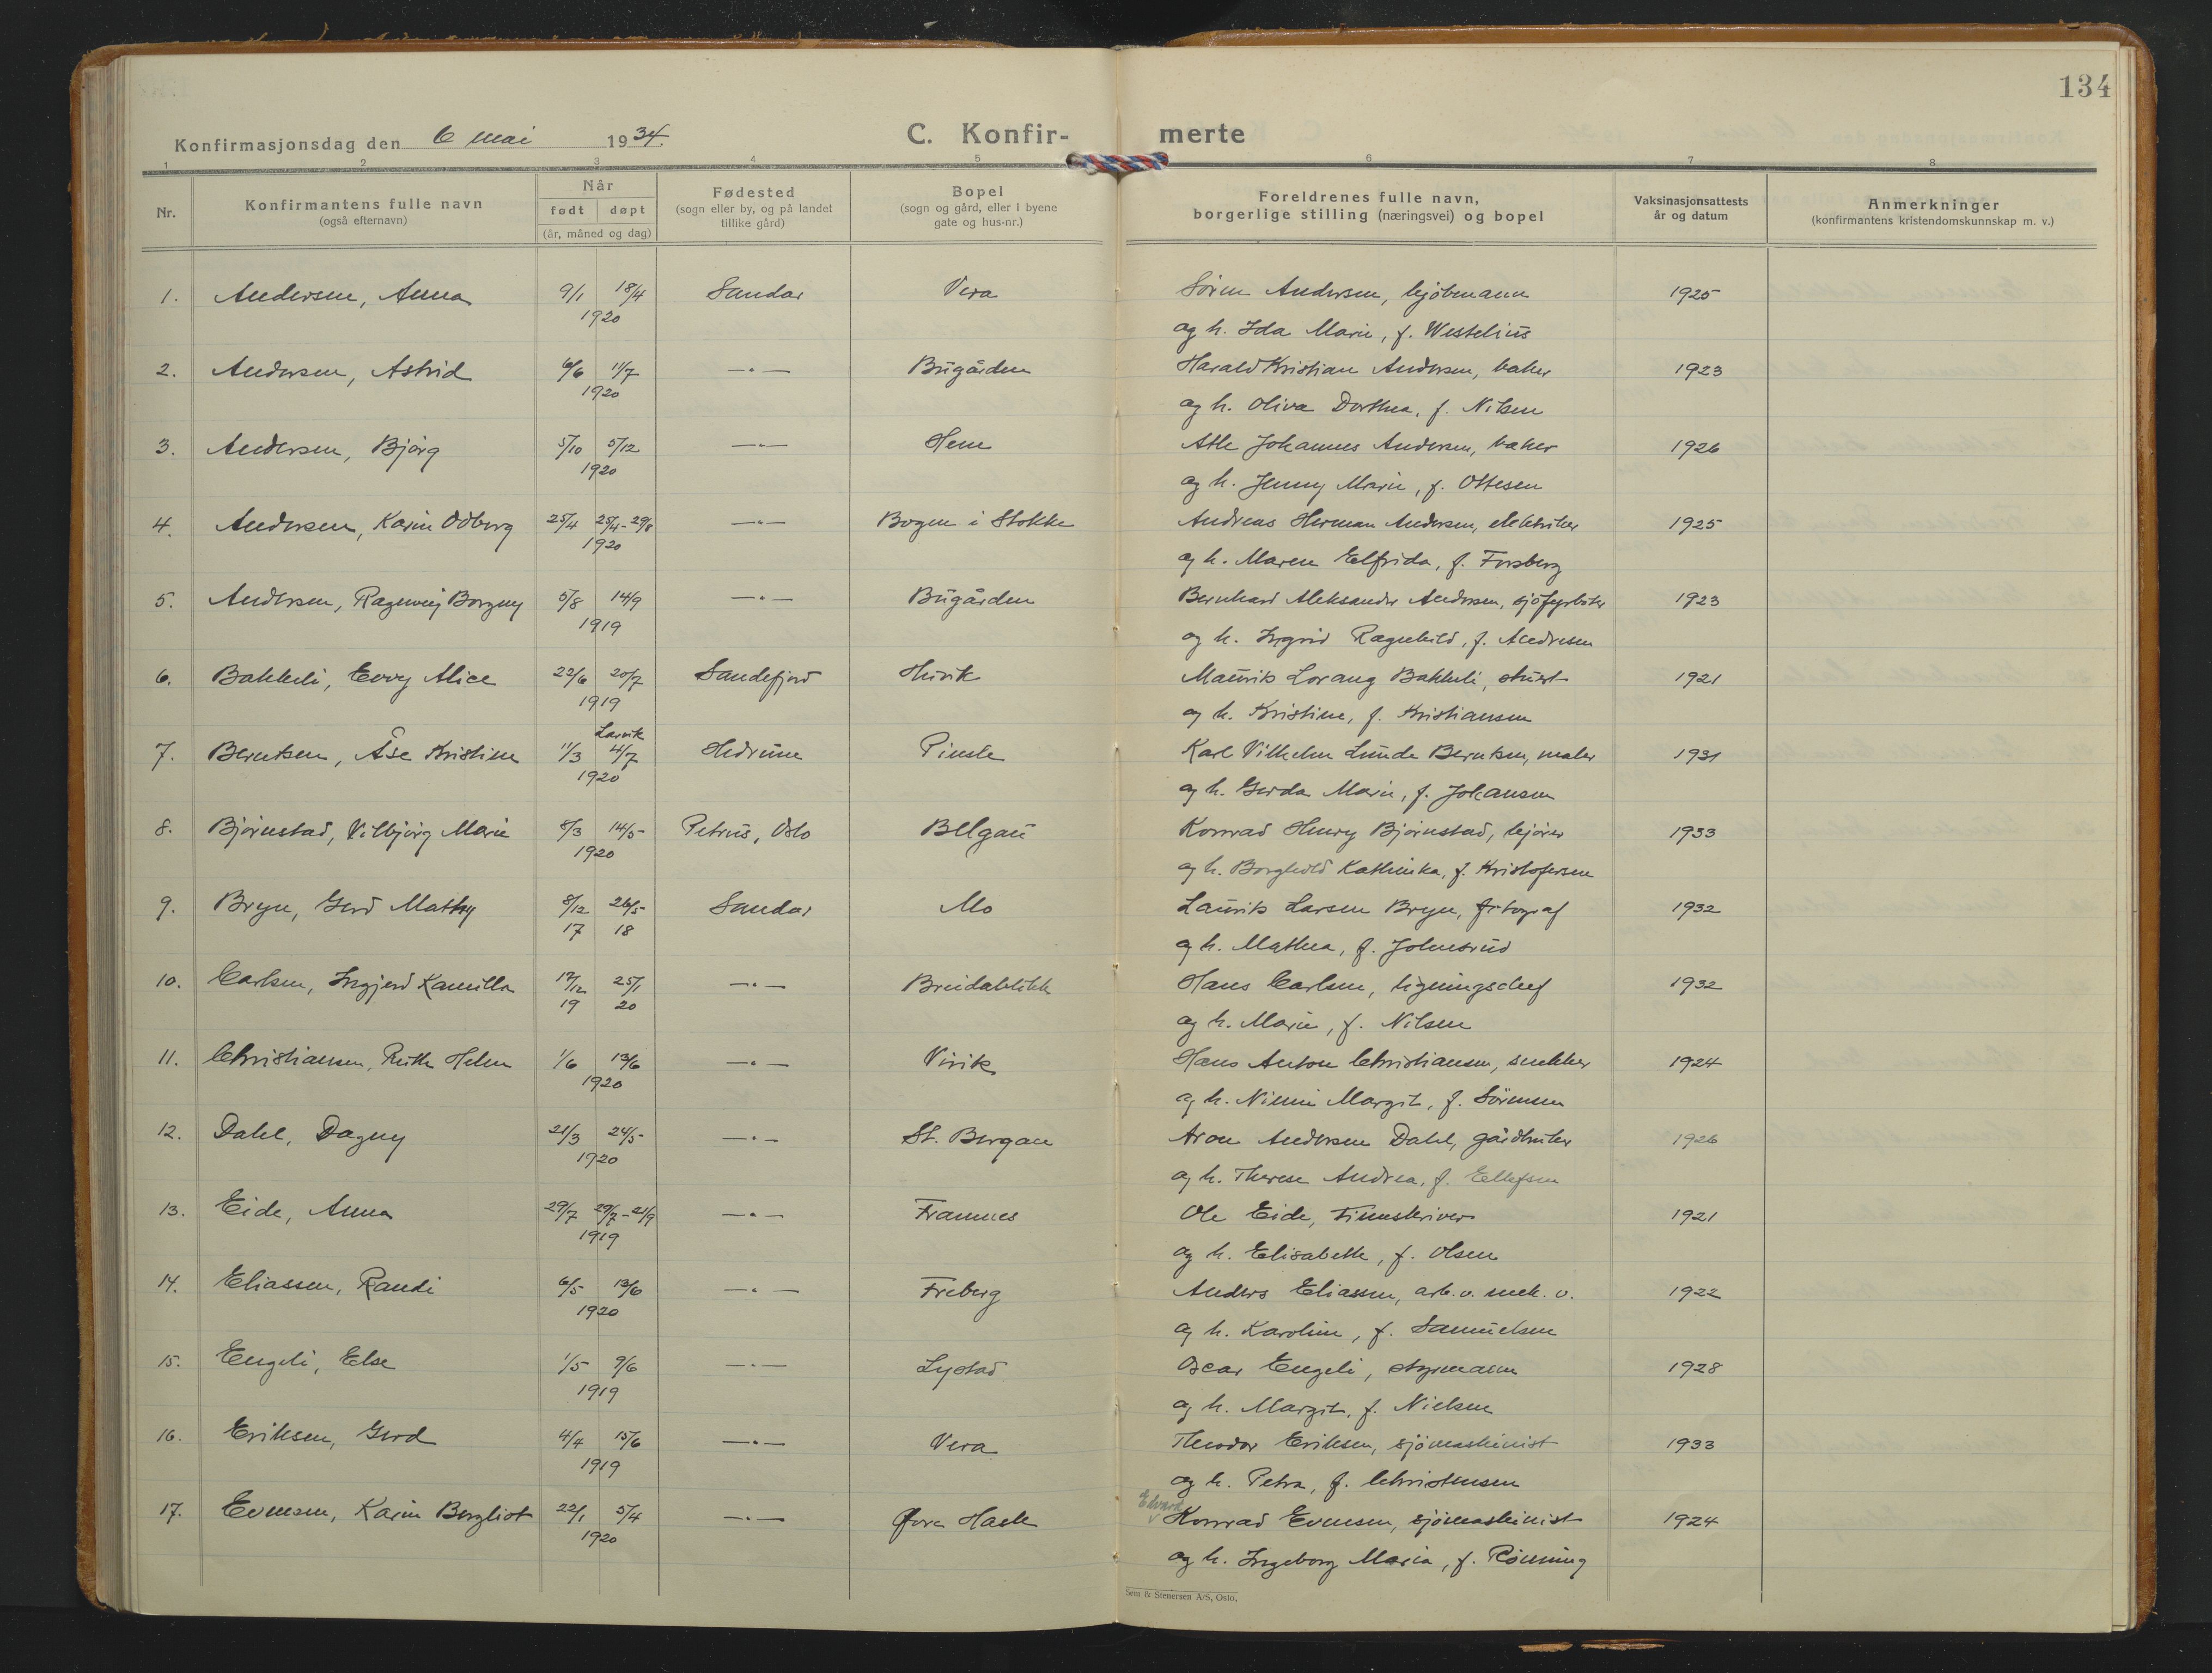 134
Konfirmasjonsdag den 6 mai 1934.
C. Konfir- merte
1 2 3 4 5 6 7 8
Nr. Konfirmantens fulle navn (også efternavn) Når født døpt (år, måned og dag) Fødested (sogn eller by, og på landet tillike gård) Bopel (sogn og gård, eller i byene gate og hus-nr.) Foreldrenes fulle navn, borgerlige stilling (næringsvei) og bopel Vaksinasjonsattests år og datum Anmerkninger (konfirmantens kristendomskunnskap m. v.)
1. Andersen, Anna 9/1 18/4 Sandar Vera Sörin Andersen, kjöbmann 1925
1920 og h. Ida Marie, f. Westelius
2. Andersen, Astrid 6/6 11/7 —„— Bugården Harald Kristian Andersen, baker 1923
1920 og h. Oliva Dorthea, f. Nilsen
3. Andersen, Bjørg 5/10 5/12 —„— Hem Atle Johannes Andersen, baker 1926
1920 og h. Jenny Marie, f. Ottesen
4. Andersen, Karin Odberg 25/4 25/4-29/8 —„— Bogen i Stokke Andreas Herman Andersen, elektriker 1925
1920 og h. Maren Elfrida, f. Forsberg
5. Andersen, Ragnveig Borgny 5/8 14/9 —„— Bugården Bernhard Aleksander Andersen, sjøfyrböter 1923
1919 og h. Ingrid Ragnhild, f. Andresen
6. Bakkeli, Evvy Alice 22/6 20/7 Sandefjord Huvik Maurits Lorang Bakkeli, stuert 1921
1919 og h. Kristine, f. Kristiansen
Larvik
7. Berntsen, Åse Kristine 11/3 4/7 Hedrum Pindsle Karl Vilhelm Lunde Berntsen, maler 1931
1920 og h. Gerda Marie, f. Johansen
8. Bjørnstad, Vilbjörg Marie 8/3 14/5 Petrus, Oslo Bellgau Konrad Henry Bjørnstad, kjører 1933
1920 og h. Borghild Kathinka, f. Kristofersen
9. Bryn, Gerd Mathy 8/12 26/5 Sandar Mo Laurits Larsen Bryn, fotograf 1932
17 18 og h. Mathea, f. Johnsrud
10. Carlsen, Ingjerd Kamilla 17/12 25/1 —„— Breidablikk Hans Carlsen, ligningschef 1932
19 20 og h. Marie, f. Nilsen
11. Christiansen, Ruth Helen 1/6 13/6 —„— Virik Hans Anton Christiansen, snekker 1924
1920 og h. Nimi Margit, f. Sörensen
12. Dahl, Dagny 21/3 24/5 —„— St. Bergan Aron Andersen Dahl, gårdbruker 1926
1920 og h. Therese Andrea, f. Ellefsen
13. Eide, Anna 29/7 29/7-21/9 —„— Framnes Ole Eide, timeskriver 1921
1919 og h. Elisabeth, f. Olsen
14. Eliassen, Randi 6/5 13/6 —„— Freberg Anders Eliassen, arb. v. mek. v. 1922
1920 og h. Karoline, f. Samuelsen
15. Engeli, Else 1/5 9/6 —„— Lystad Oscar Engeli, styrmann 1928
1919 og h. Margit, f. Nielsen
16. Eriksen, Gerd 4/4 15/6 —„— Vera Theodor Eriksen, sjömaskinist 1933
1919 og h. Petra, f. Christensen
Edvard
17. Evensen, Karin Bergliot 22/1 5/4 —„— Øvre Hasle Konrad Evensen, sjömaskinist 1924
1920 og h. Ingeborg Maria, f. Rönning
Sem & Stenersen A/S, Oslo.